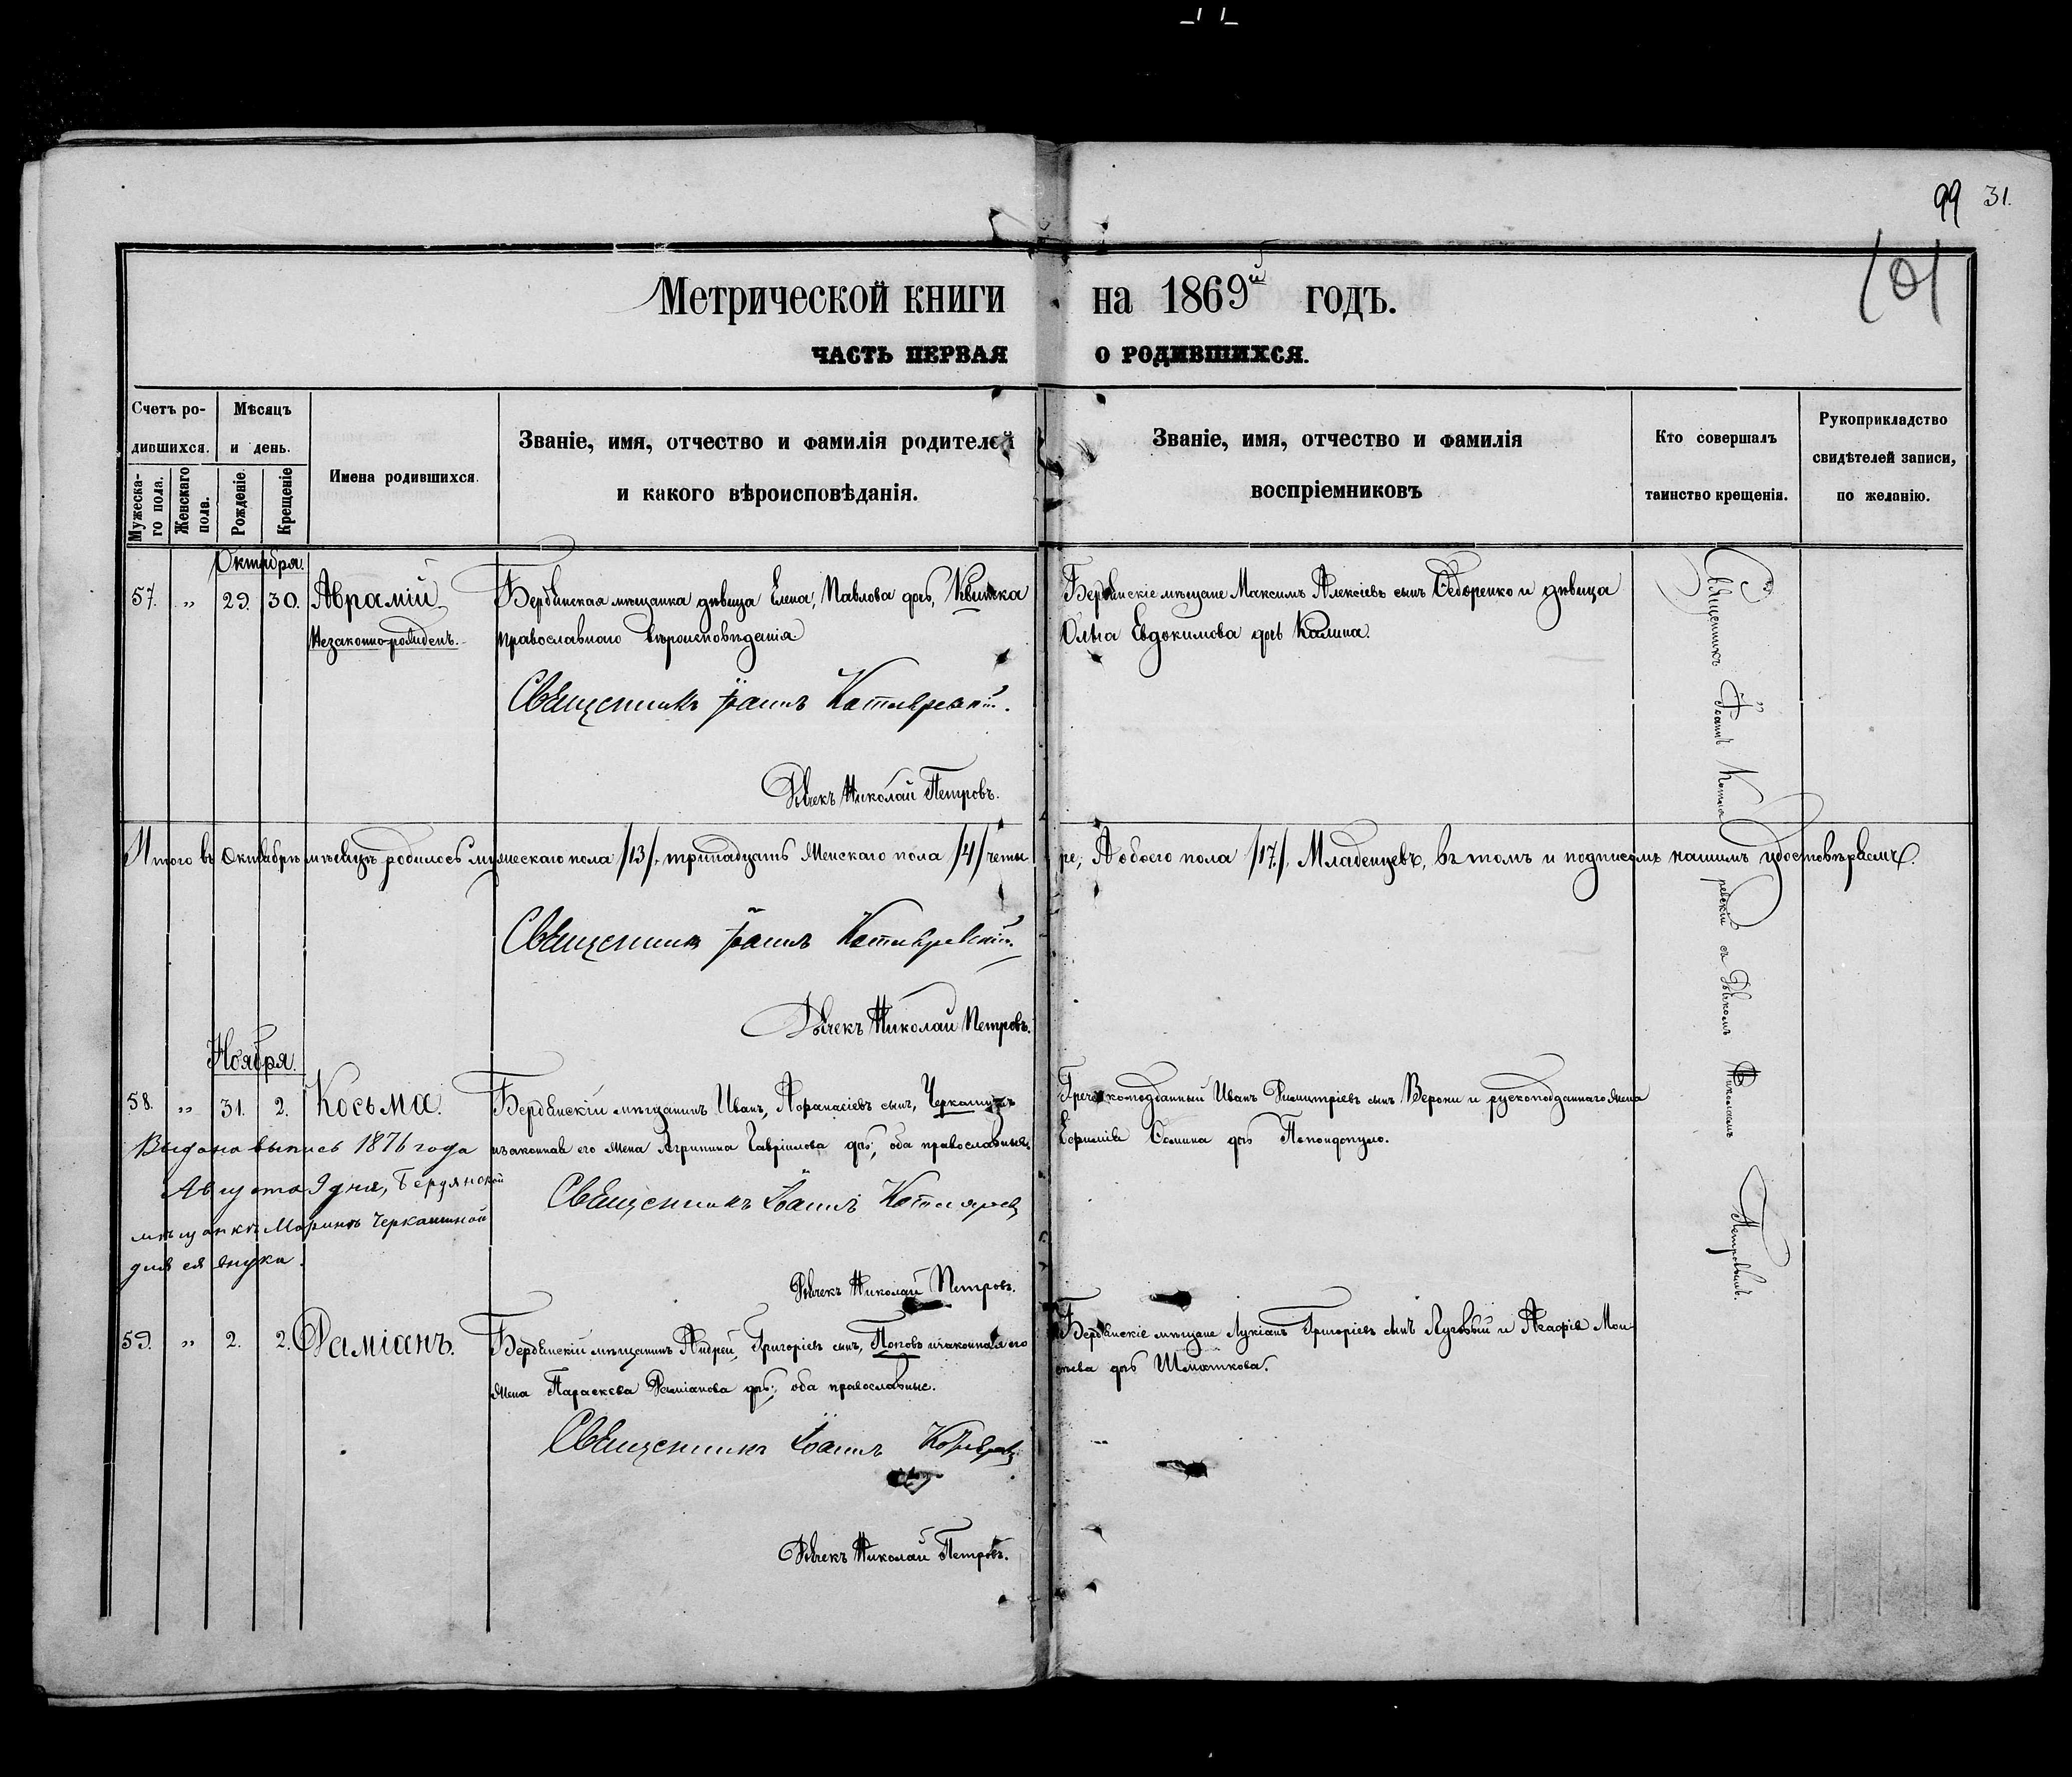 99 31.
101
Метрической книги на 1869й годъ.
ЧАСТЬ ПЕРВАЯ О РОДИВШИХСЯ.
Счетъ ро-
дившихся.
Мужеска-
го пола.
Женскаго
пола.
Мѣсяцъ
и день.
Рожденіе.
Крещеніе
Имена родившихся.
Званіе, имя, отчество и фамилія родителей
и какого вѣроисповѣданія.
Званіе, имя, отчество и фамилія
воспріемниковъ
Кто совершалъ
таинство крещенія.
Рукоприкладство
свидѣтелей записи,
по желанію.
Октября.
57. „ 29. 30. Аврамій
Незаконно-рожденъ.
Бердянская мѣщанка дѣвица Елена, Павлова дочь, Квитка
православнаго вѣроисповѣданія
Священникъ Іоаннъ Котляревскій.
Дьячекъ Николай Петровъ.
Бердянскіе мѣщане Максимъ Алексіевъ сынъ Ѳедоренко и дѣвица
Ольга Евдокимова дочь Калина.
Священникъ Іоаннъ Котляревскій съ Дьячкомъ Николаемъ Петровымъ.
Итого въ Октябрѣ мѣсяцѣ родилось мужескаго пола /13/ тринадцать женскаго пола /4/ четыре, А обоего пола /17/. Младенцевъ, въ томъ и подписомъ нашимъ удостовѣряемъ.
Священникъ Іоаннъ Котляревскій.
Дьячекъ Николай Петровъ.
Ноября.
58. „ 31. 2. Косьма.
Бердянскій мѣщанинъ Иванъ, Афанасіевъ сынъ, Черкашинъ
изаконная его жена Агрипина Гавріилова дочь; оба православные.
Священникъ Іоаннъ Котлярев
Дьячекъ Николай Петровъ.
Греческоподданный Иванъ Димитріевъ сынъ Верони и рускоподданнаго жена
Ефимія Ѳомина дочь Попондопуло.
Выдана выпись 1876 года
Августа 9 дня, Бердянской
мѣщанкѣ Маринѣ Черкашиной
для ея внука.
59. „ 2. 2. Даміанъ.
Бердянскій мѣщанинъ Андрей, Григоріевъ сынъ, Поповъ изаконная его
жена Параскева Даміанова дочь; оба православные.
Священникъ Іоаннъ
Дьячекъ Николай Петровъ.
Бердянскіе мѣщане Лукіанъ Григоріевъ сынъ Луговый и Агафія Мои-
сѣева дочь Шматкова.